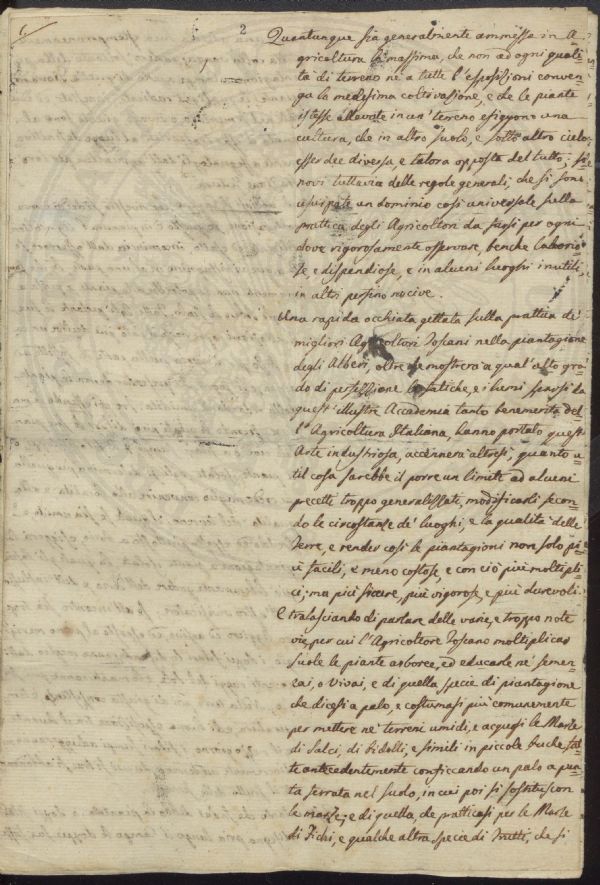 2
Quantunque sia generalmente ammessa in A=
gricoltura la massima, che non ad ogni quali=
tà di terreno nè a tutte l'esposizioni conven=
ga la medesima coltivazione, e che le piante
istesse allevate in un' terreno esigono una
cultura, che in altro suolo, e sotto altro cielo
esser dee diversa e talora opposta del tutto; si
novi tuttavia delle regole generali, che si sono
usurpate un dominio così universale sulla
prattica degli Agricoltori da farsi per ogni
dove rigorosamente osservare, benche laborio=
se e dispendiose, e in alcuni luoghi inutili,
in altri persino nocive.
Una rapida occhiata gettata sulla prattica de'
migliori Agricoltori Toscani nella piantagione
degli Alberi, oltre che mostrerà a qual'alto gra=
do di perfezione le fatiche, e i lumi sparsi da
quest'illustre Accademia tanto benemerita del=
l'Agricoltura Italiana, hanno portato quest'
Arte industriosa, accennerà altresì, quanto u=
til cosa sarebbe il porre un limite ad alcuni
precetti troppo generalizzati, modificarli secon=
do le circostanze de' luoghi, e la qualità delle
Terre, e render così le piantagioni non solo pi=
ù facili, e meno costose, e con ciò più moltipli=
ci; ma più sicure, più vigorose, e più durevoli.
E tralasciando di parlare delle varie, e troppo note
vie, per cui l'Agricoltore Toscano moltiplicar
suole le piante arboree, ed educarle ne' semen=
zai, o Vivai, e di quella specie di piantagione
che dicesi a palo, e costumasi più comunemente
per mettere ne' terreni umidi, e acquosi le Marze
di Salci, di Pidolli, e simili in piccole buche fat=
te antecedentemente conficcando un palo a pun=
ta serrata nel suolo, in cui poi si sostituiscon
le marze; e di quella, che pratticasi per le Marze
di Fichi, e qualche altra specie di Frutti, che si